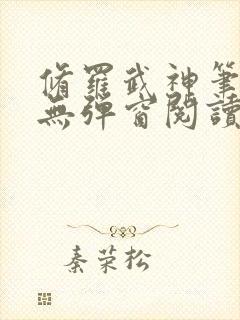 脩羅武神筆
無彈窗閱讀
秦荣松